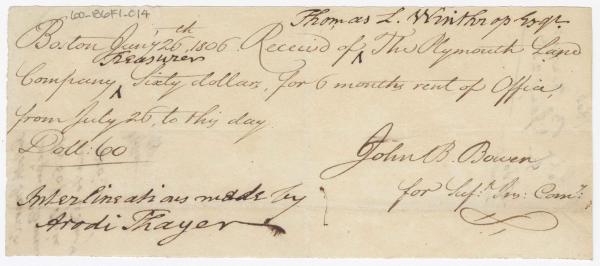 60-B6F1-C14
Thomas L. Winthrop Esqr
Boston Jany 26th, 1806 Received of ^ The Plymouth Land
Treasurer
Company ^ Sixty dollars, for 6 months rent of Office,
from July 26, to this day.
Doll: 60
John B. Bowen
for
Interlineations made by
Arodi Thayer